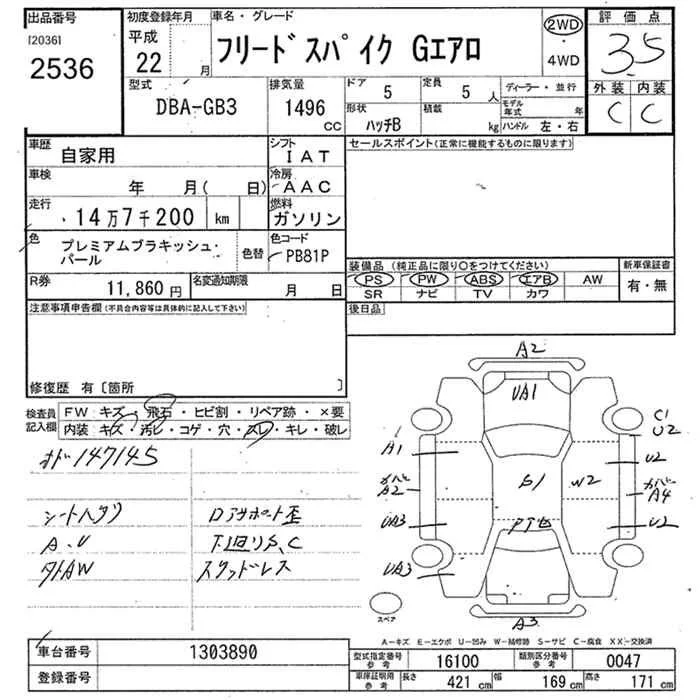 出品番号 初度登録年月 車名・グレード 評価点
[2036] 平成 フリードスパイク Gエアロ 2WD 3.5
2536 22 月 ・ 4WD
型式 排気量 ドア 5 定員 5 人 ディーラー・並行 外装 内装
DBA-GB3 1496 cc 形状 ハッチB 積載 kg モデル年式 年 C C
ハンドル 左・右
車歴 自家用 シフト IAT セールスポイント(正常に機能するものに限ります)
車検 年 月( 日) 冷房 AAC
走行 14万7千200 km 燃料 ガソリン
色 プレミアムブラキッシュ・パール 色替 色コード PB81P
装備品 (純正品に限り○をつけてください) 新車保証書
R券 11,860 円 名変通知期限 月 日 PS PW ABS エアB AW 有・無
SR ナビ TV カワ
注意事項申告欄(不具合内容等は具体的に記入して下さい) 後日品
修復歴 有〔箇所 〕
検査員記入欄 FW:キズ・飛石・ヒビ割・リペア跡・×要
内装:キズ・汚レ・コゲ・穴・スレ・キレ・破レ
オド147145
シートヘタリ
A.U 下回りS,C
外AW スタッドレス
A2
UA1
C1
U2
A1 U2
A2 S1 W2 A4
UA3 U2
UA3
A3
スペア
A-キズ E-エクボ U-凹み W-補修跡 S-サビ C-腐食 XX-交換済
車台番号 1303890 型式指定番号 参考 16100 類別区分番号 参考 0047
登録番号 車庫証明用 参考 長さ 421 cm 幅 169 cm 高さ 171 cm